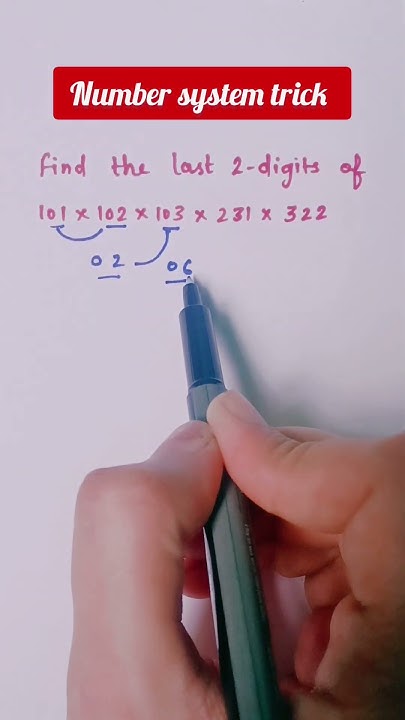 Number system trick
Find the last 2-digits of
101 × 102 × 103 × 231 × 322
02 06